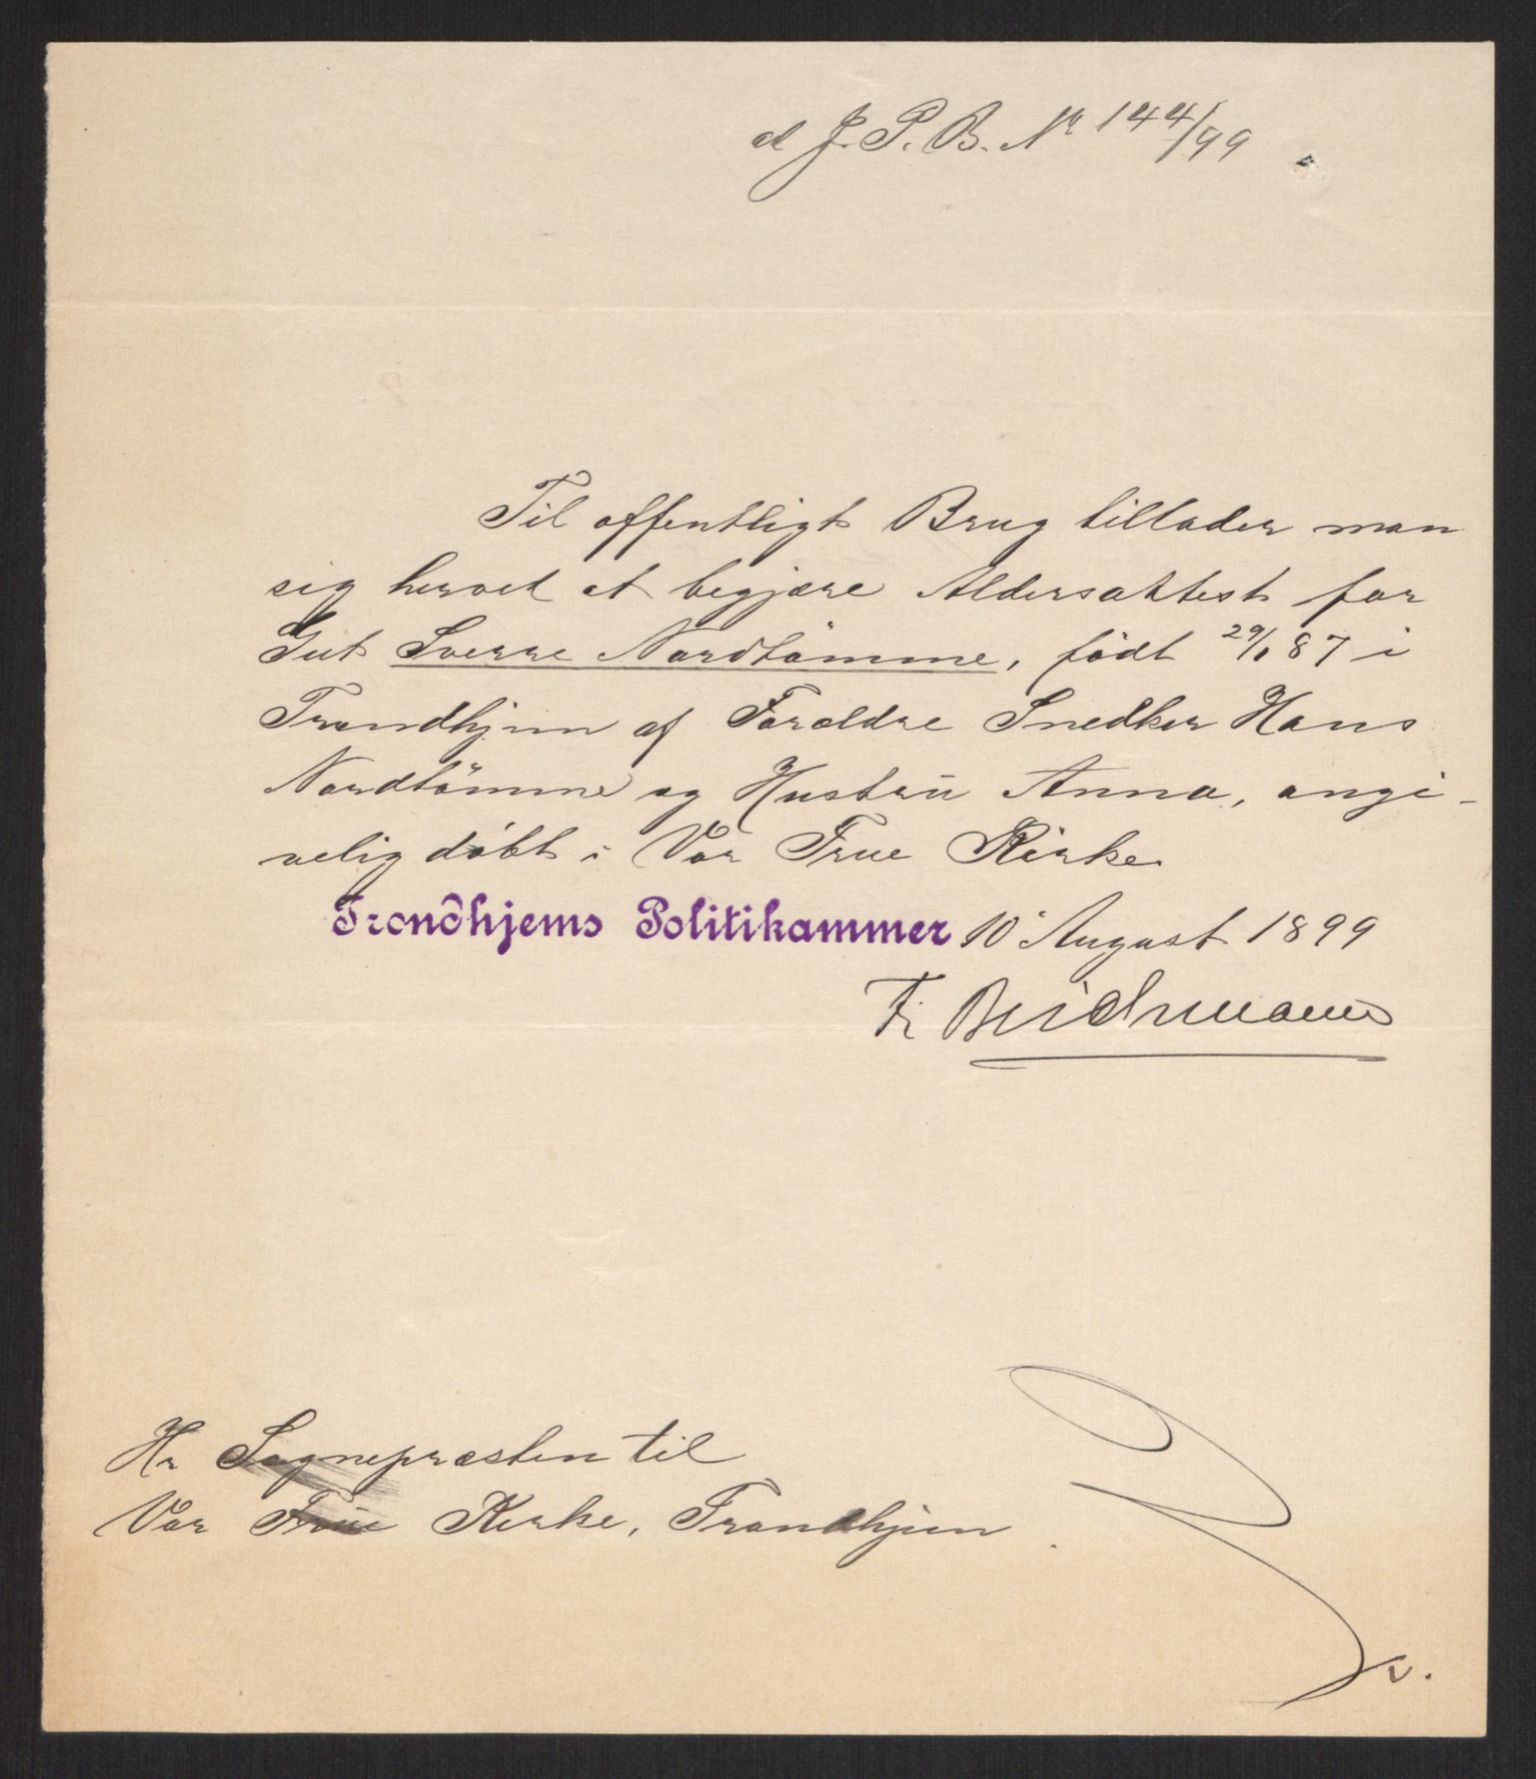 ad J. P. B. Nr 144/99
Til offentligt Brug tillader man
sig herved at begjære Aldersattest for
Gut Sverre Nordtömme, födt 29/1 87 i
Trondhjem af Forældre Snedker Hans
Nordtömme og Hustrü Anna, angi-
velig döbt i Vor Frue Kirke.
Trondhjems Politikammer 10' August 1899
Fr. Beichmann
Hr Sognepræsten til
Vor Frue Kirke, Trondhjem
v.